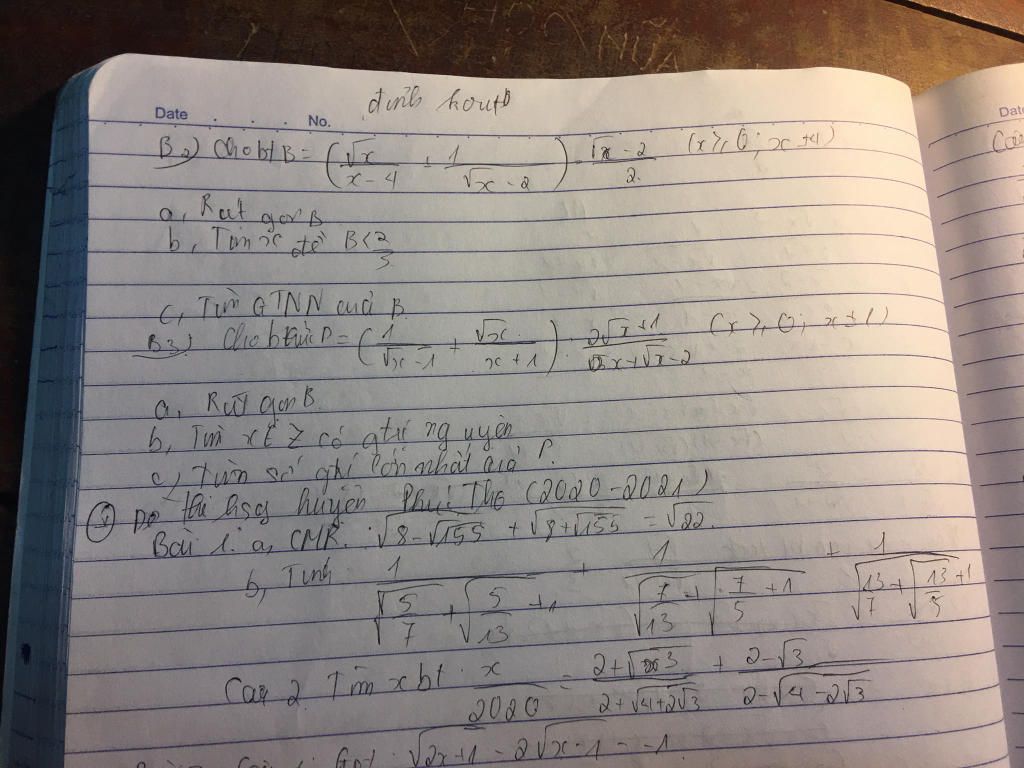 định houtb
Date No. Date
B2) Cho bt B = (√x/(x-4) + 1/(√x-2)) · (√x-2)/2 (x ≥ 0; x ≠ 4)
a, Rút gọn B
b, Tìm x để B < 2/3
c, Tìm GTNN của B
B3) Cho bthức P = (1/(√x-1) + √x/(x+1)) : (2√x+1)/(√2x+√x-2) (x ≥ 0; x ≠ 1)
a, Rút gọn B
b, Tìm x ∈ Z có gtrị nguyên
c, Tìm số gtrị lớn nhất của P.
Đề thi hsg huyện Phú Thọ (2020-2021)
Bài 1. a, CMR: √(8-√155) + √(8+√155) = √22.
b, Tính 1/(√(5/7)+√(5/13)+1) + 1/(√(7/13)+√(7/5)+1) + 1/(√(13/7)+√(13/5)+1)
Câu 2. Tìm x bt x/2020 = (2+√3)/(2+√(4+2√3)) + (2-√3)/(2-√(4-2√3))
Gpt: √(2x+1) - 2√(x-1) = -1